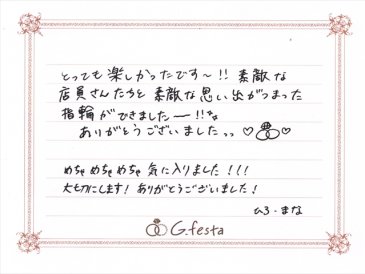 とっても楽しかったです〜!! 素敵な
店員さんたちと素敵な思い出がつまった
指輪ができましたー!!
ありがとうございました
めちゃめちゃめちゃ気に入りました!!!
大切にします! ありがとうございました!
ひろ・まな
G.festa